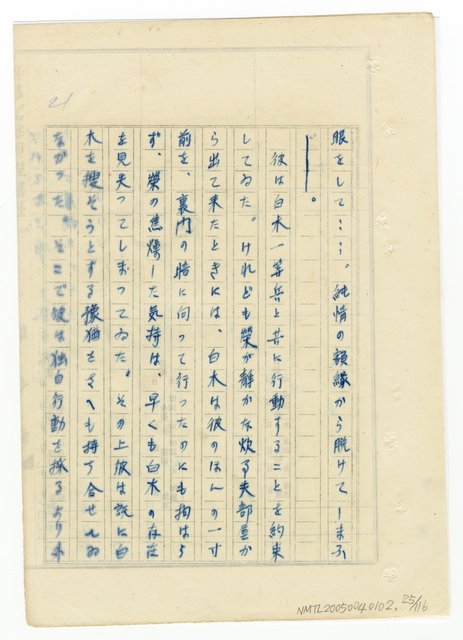 眼をして‥‥。純情の額縁から脱けてしまふ
───。
彼は白木一等兵と共に行動することを約束
してゐた。けれども榮が静かな炊事夫部屋か
ら出て来たときには、白木は彼のほんの一寸
前を、裏門の暗に向って行ったのにも拘はら
ず、榮の焦燥した気持は、早くも白木の存在
を見失ってしまってゐた。その上彼は既に白
木を捜そうとする豫猶をさへも持ち合せんゐ
なかった。そこで彼は独白行動を採るより外
21
NMTL20050040102, 25/116